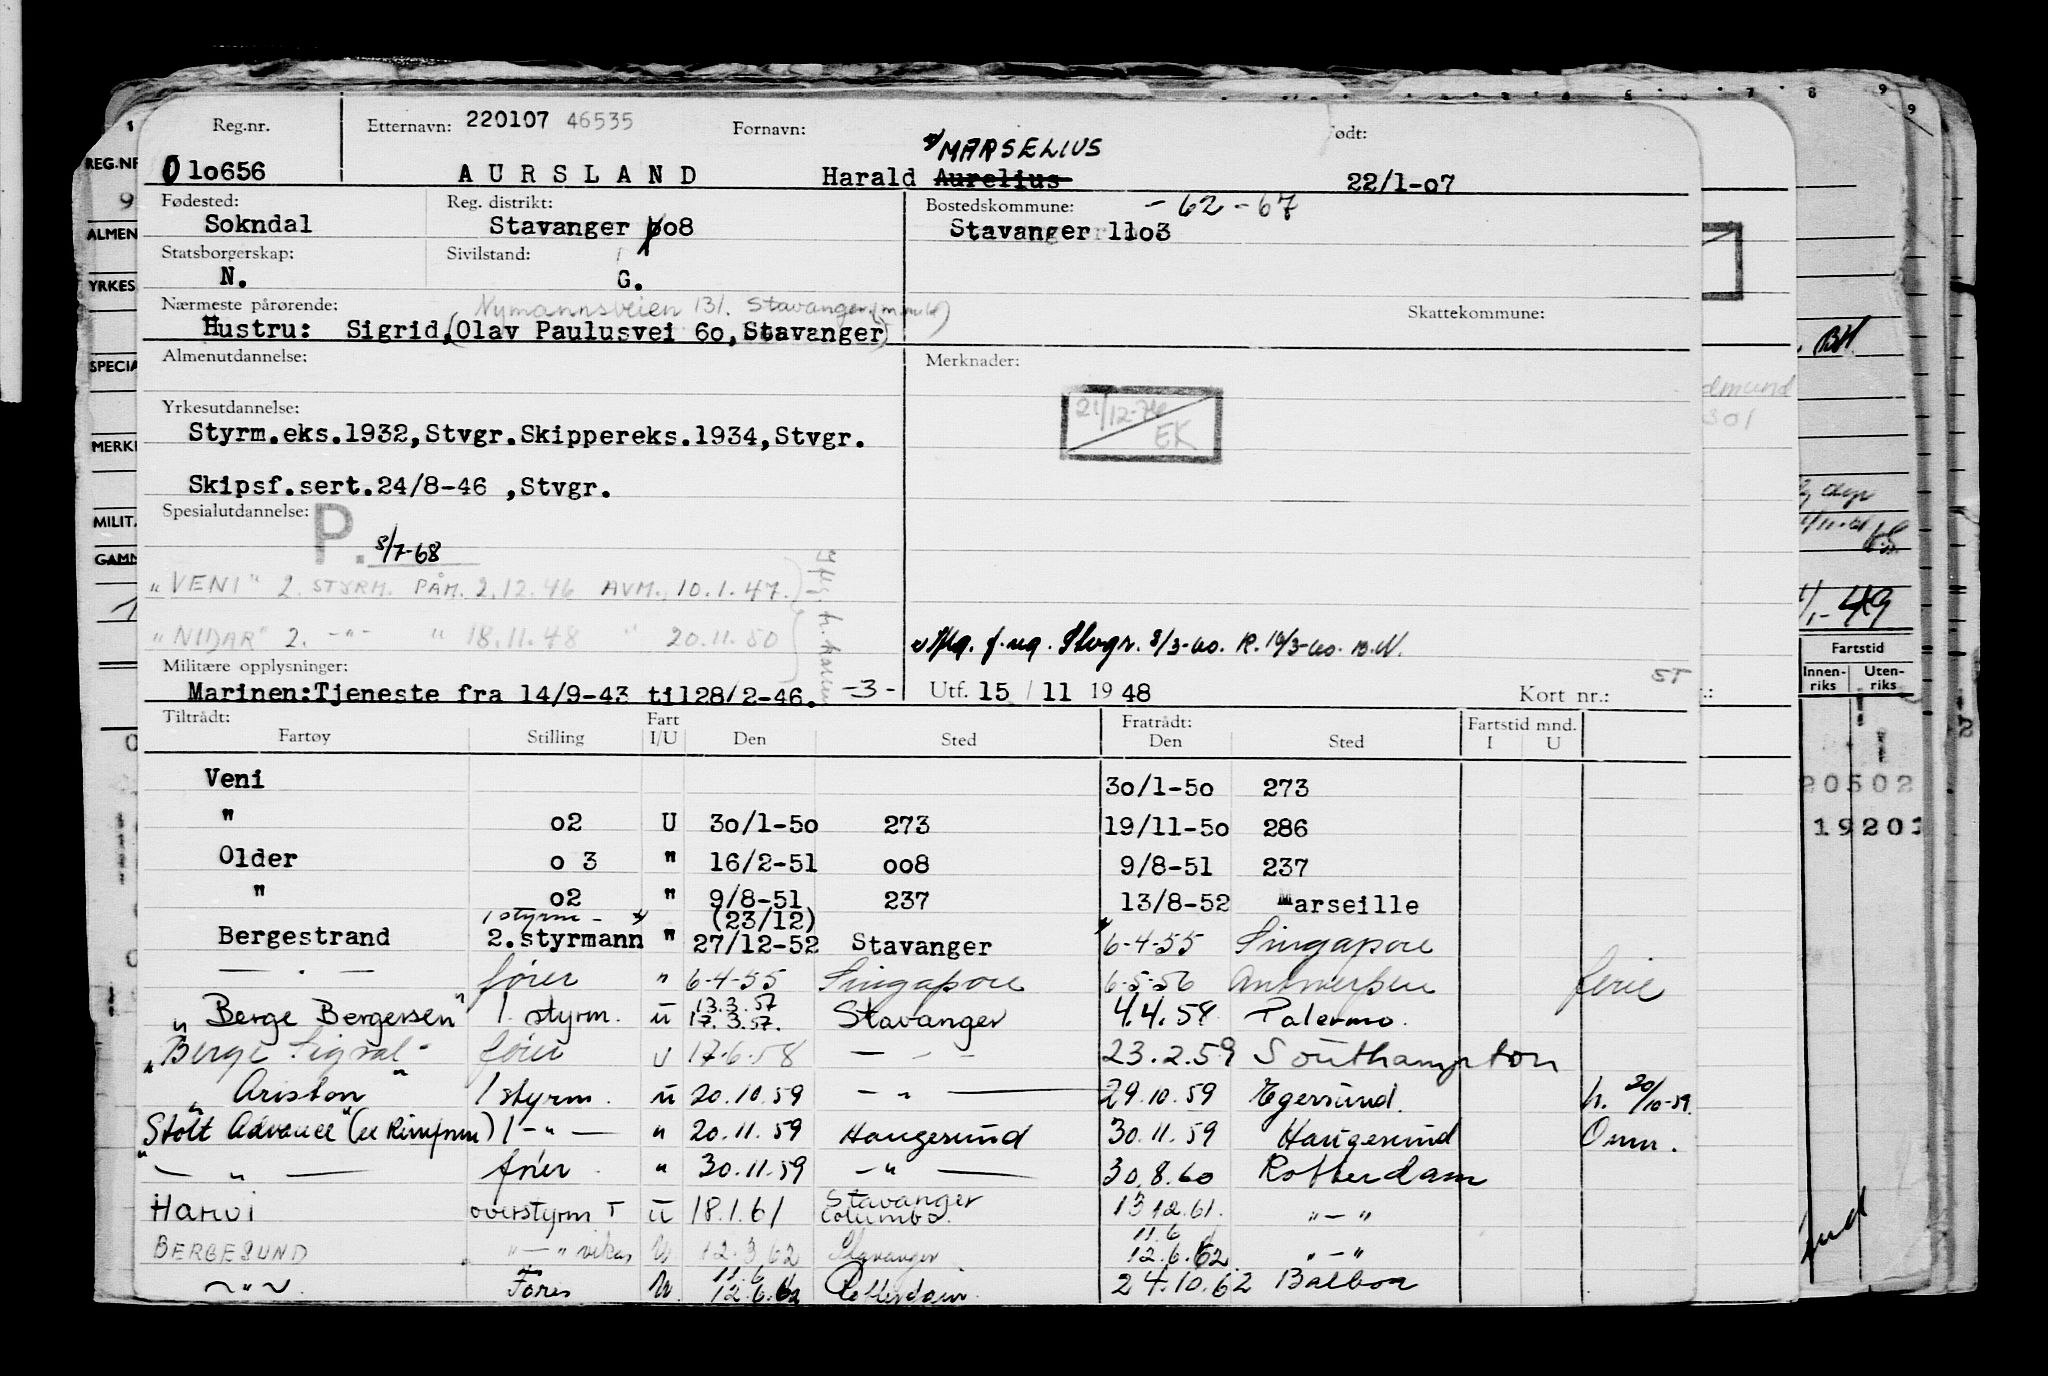 Reg.nr. Etternavn: 220107 46535 Fornavn: Født:
MARSELIUS
010656 AURSLAND Harald Aurelius 22/1-07
Fødested: Reg. distrikt: Bostedskommune: -62-67
Sokndal Stavanger 008 Stavanger 1103
Statsborgerskap: Sivilstand:
N. G.
Nærmeste pårørende: Nymannsveien 131. Stavanger Skattekommune:
Hustru: Sigrid,(Olav Paulusvei 60,Stavanger)
Almenutdannelse: Merknader:
21/12-74
EK
Yrkesutdannelse:
Styrm.eks.1932,Stvgr.Skippereks.1934,Stvgr.
Skipsf.sert.24/8-46 ,Stvgr.
Spesialutdannelse:
P. 8/7-68
"VENI" 2. STYRM. PÅM. 2.12.46 AVM. 10.1.47.
"NIDAR" 2. -"- " 18.11.48 " 20.11.50
Stvgr. 8/3-60. R. 10/3-60. B.N.
Militære opplysninger:
Marinen:Tjeneste fra 14/9-43 til28/2-46. -3- Utf. 15/11 1948 Kort nr.: ST
Tiltrådt: Fart Fratrådt: Fartstid mnd.
Fartøy Stilling I/U Den Sted Den Sted I U
Veni 30/1-50 273
" 02 U 30/1-50 273 19/11-50 286
Older 0 3 " 16/2-51 008 9/8-51 237
" 02 " 9/8-51 237 13/8-52 Marseille
1 styrm - (23/12)
Bergestrand 2.styrmann " 27/12-52 Stavanger 6-4-55 Singapore
— . — fører " 6-4-55 Singapore 6-5-56 Antwerpen ferie
13.3.57
"Berge Bergersen" 1. styrm. u 17.3.57. Stavanger 4.4.58 Palermo.
"Berge Sigval" fører u 17-6-58 — - - 23.2.59 Southampton
"Ariston" 1 styrm. u 20.10.59 — " — 29.10.59 Egersund. h. 20/10-59.
"Stolt Advance" (ex Rimfonn) 1 -"- " 20.11.59 Haugesund 30.11.59 Haugesund Omm.
— " — fører " 30.11.59 -"- 30.8.60 Rotterdam
Stavanger
Harwi overstyrm T u 18.1.61 Columbo. 13.12.61. "-"
11.6
BERGESUND "-" vikar U 12.3.62 Stavanger 12.6.62. "-"
11.6
-"- Fører U. 12.6.62 Rotterdam. 24.10.62 Balboa
REG.NR
9
ALMEN
YRKES
SPECIA
MERKN
MILIT.
GAMM
1/1-49
Fartstid
Innen-riks Uten-riks
20502
19201